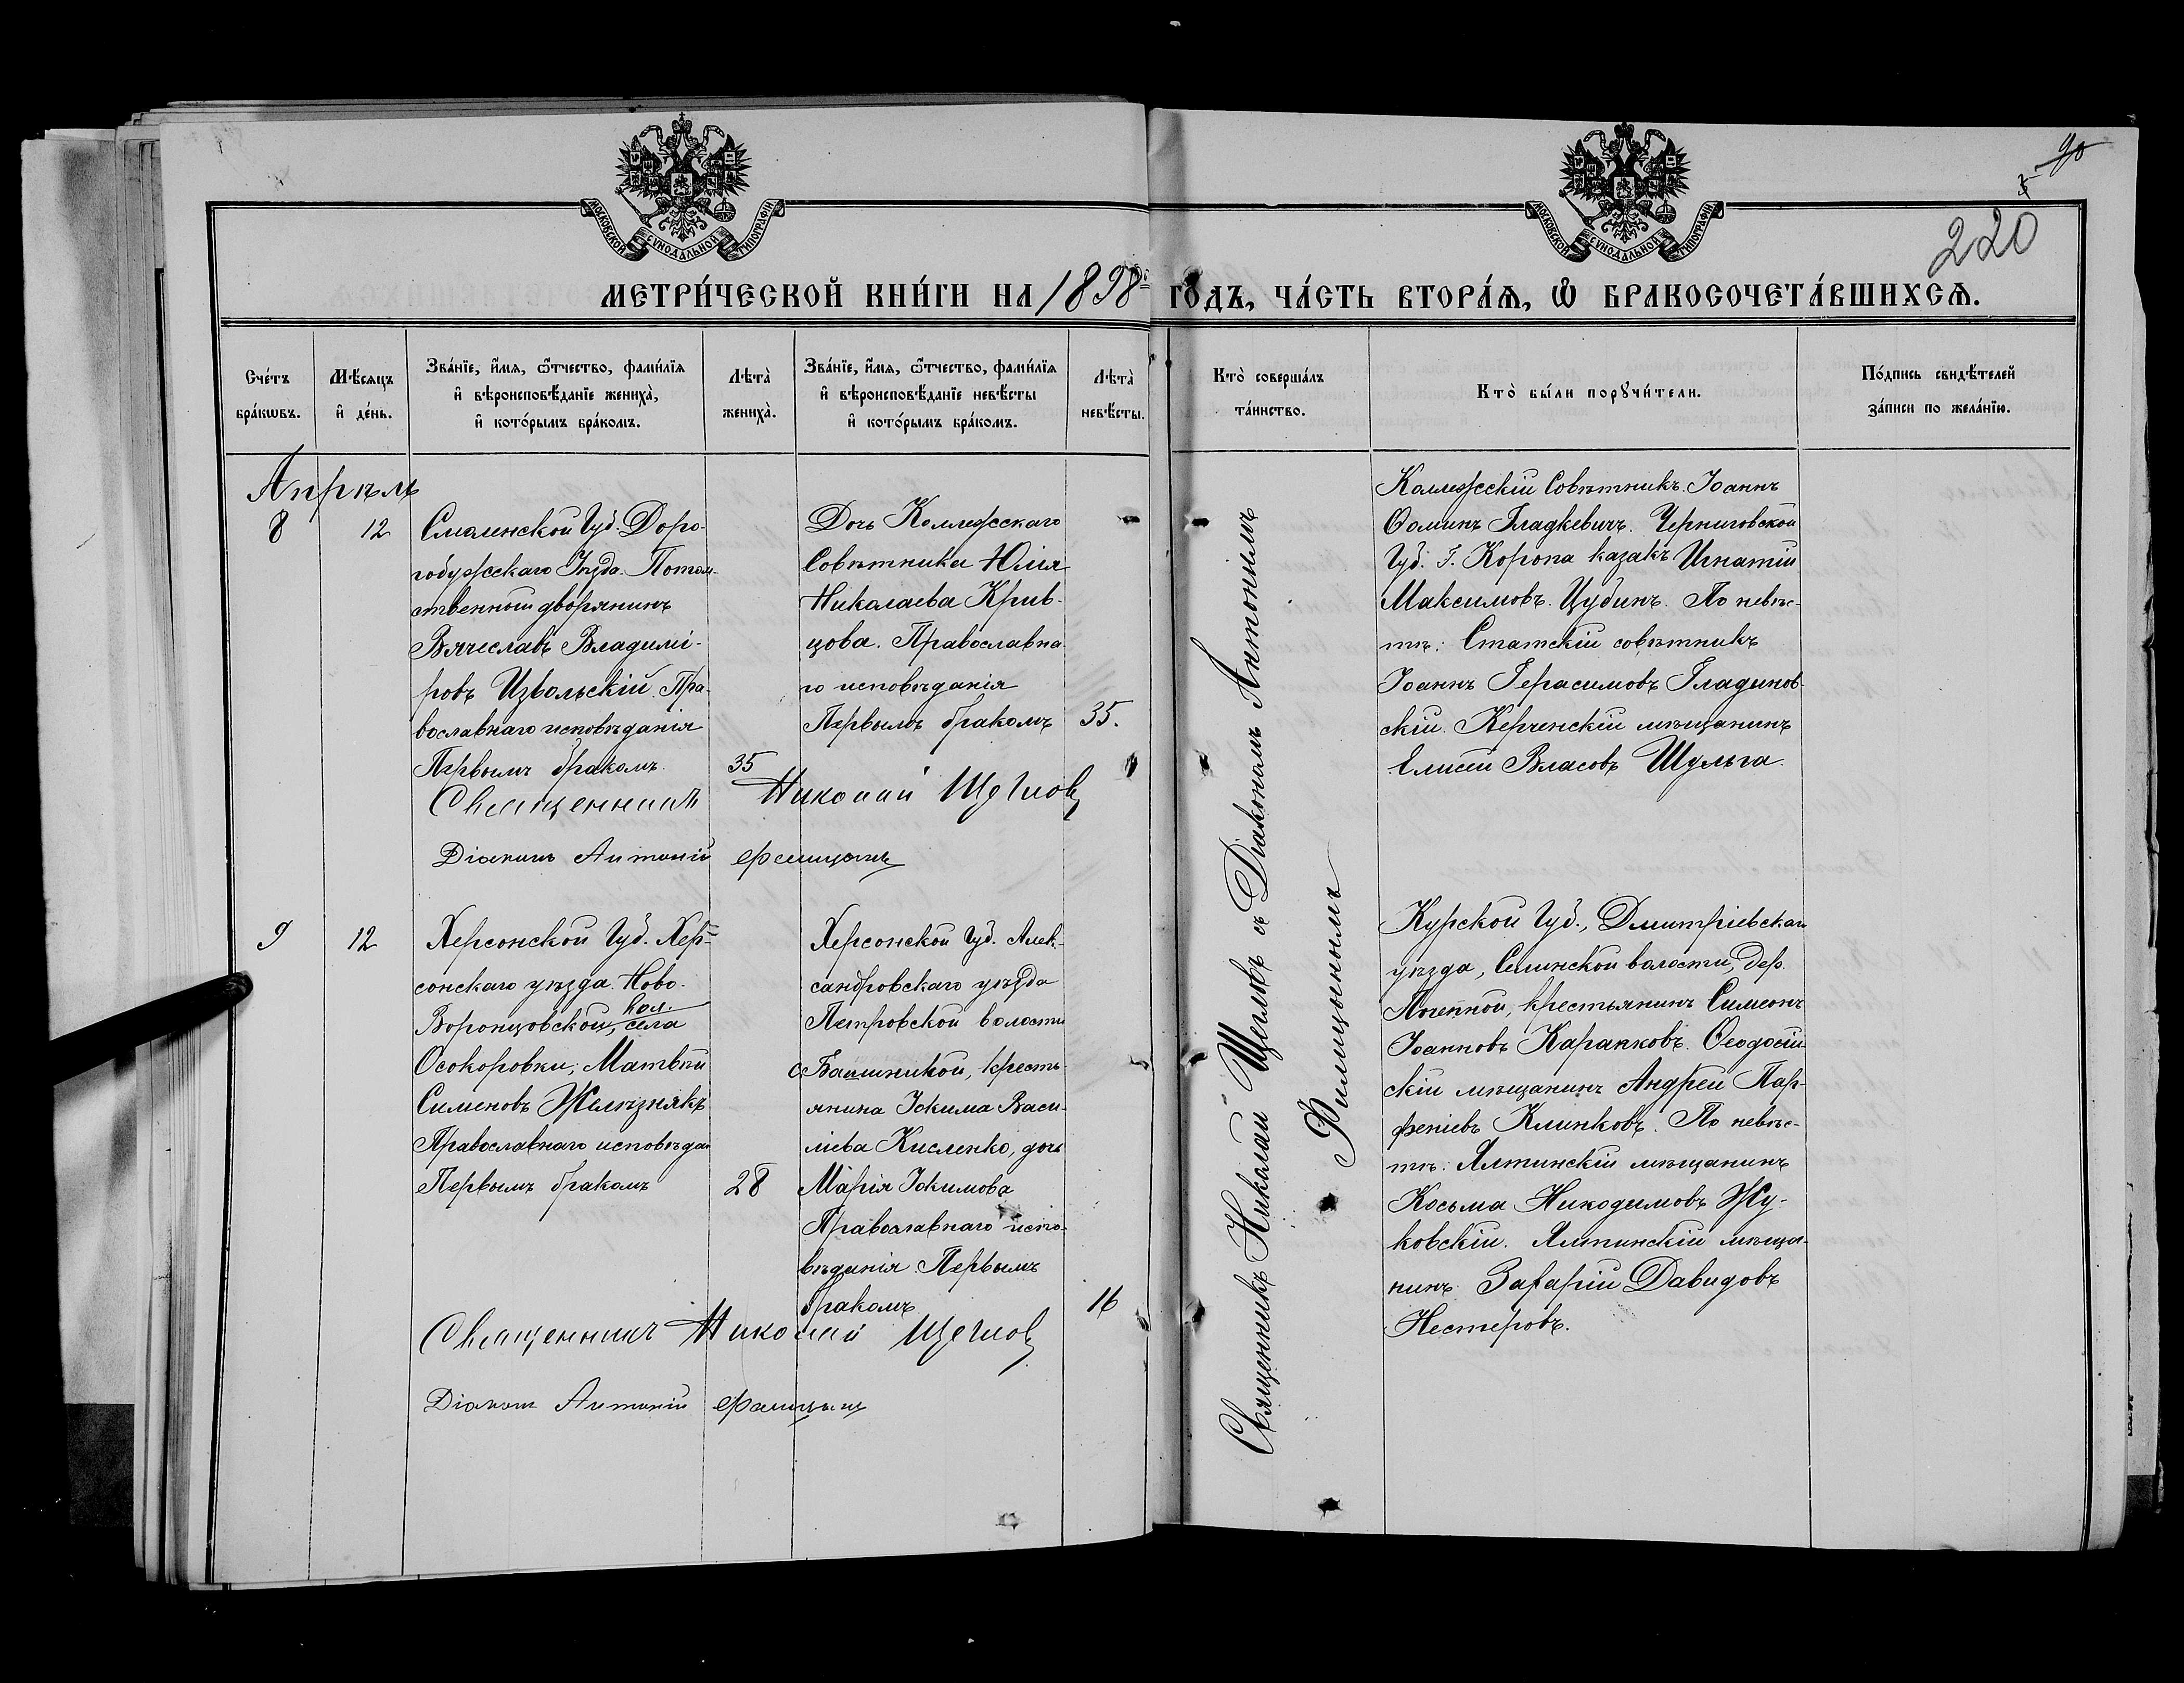 90
220
МОСКОВСКОЙ СѴНОДАЛЬНОЙ ТИПОГРАФІИ
МОСКОВСКОЙ СѴНОДАЛЬНОЙ ТИПОГРАФІИ
МЕТРИ́ЧЕСКОЙ КНИ́ГИ НА 1898 ГО́ДЪ, ЧА́СТЬ ВТОРА́Ѧ, Ѡ҆ БРАКОСОЧЕТА́ВШИХСѦ.
Сче́тъ
бра́кѡвъ.
Мѣ́сѧцъ
и҆ де́нь.
Зва́нїе, и҆́мѧ, ѻ҆́тчество, фами́лїѧ
и҆ вѣроисповѣ́данїе жениха̀,
и҆ кото́рымъ бра́комъ.
Лѣта̀
жениха̀.
Зва́нїе, и҆́мѧ, ѻ҆́тчество, фами́лїѧ
и҆ вѣроисповѣ́данїе невѣ́сты
и҆ кото́рымъ бра́комъ.
Лѣта̀
невѣ́сты.
Кто̀ соверша́лъ
та́инство.
Кто̀ бы́ли порꙋчи́тели.
По́дпись свидѣ́телей
за́писи по жела́нїю.
Апрѣль
8
12
Смоленской Губ. Доро-
гобужскаго Уѣзда. Потом-
ственный дворянинъ
Вячеславъ Владимі-
ровъ Извольскій. Пра-
вославнаго исповѣданія
Первымъ бракомъ.
35
Дочь Коллежскаго
Совѣтника Юлія
Николаева Крив-
цова. Православна-
го исповѣданія
Первымъ бракомъ
35.
Священникъ Николай Щегловъ
Діаконъ Антоній Филицынъ
Священникъ Николай Щегловъ съ Діакономъ Антоніемъ
Филицынымъ
Коллежскій Совѣтникъ Іоаннъ
Ѳоминъ Гладкевичъ. Черниговской
Губ. Г. Коропа казакъ Игнатій
Максимовъ Цубинъ. По невѣс-
тѣ: Статскій совѣтникъ
Іоаннъ Герасимовъ Гладинов-
скій. Керченскій мѣщанинъ
Елисей Власовъ Шульга.
9
12
Херсонской Губ. Хер-
сонскаго уѣзда. Ново-
Воронцовской, вол. села
Осокоровки, Матвѣй
Сименовъ Желѣзнякъ
Православнаго исповѣдан
Первымъ бракомъ
28
Херсонской Губ. Алек-
сандровскаго уѣзда
Петровской волости
с. Башиной, кресть-
янина Іокима Васи-
ліева Кисленко, дочь
Марія Іокимова
Православнаго испо-
вѣданія Первымъ
бракомъ
16
Священникъ Николай Щегловъ
Діаконъ Антоній Филицынъ
Курской Губ., Дмитріевскаго
уѣзда, Селинской волости, дер.
крестьянинъ Симеонъ
Іоанновъ Карапковъ. Ѳеодосій-
скій мѣщанинъ Андрей Пар-
феніевъ Клинковъ. По невѣс-
тѣ: Ялтинскій мѣщанинъ
Косьма Никодимовъ Жу-
ковскій. Ялтинскій мѣща-
нинъ Захарій Давидовъ
Нестеровъ.